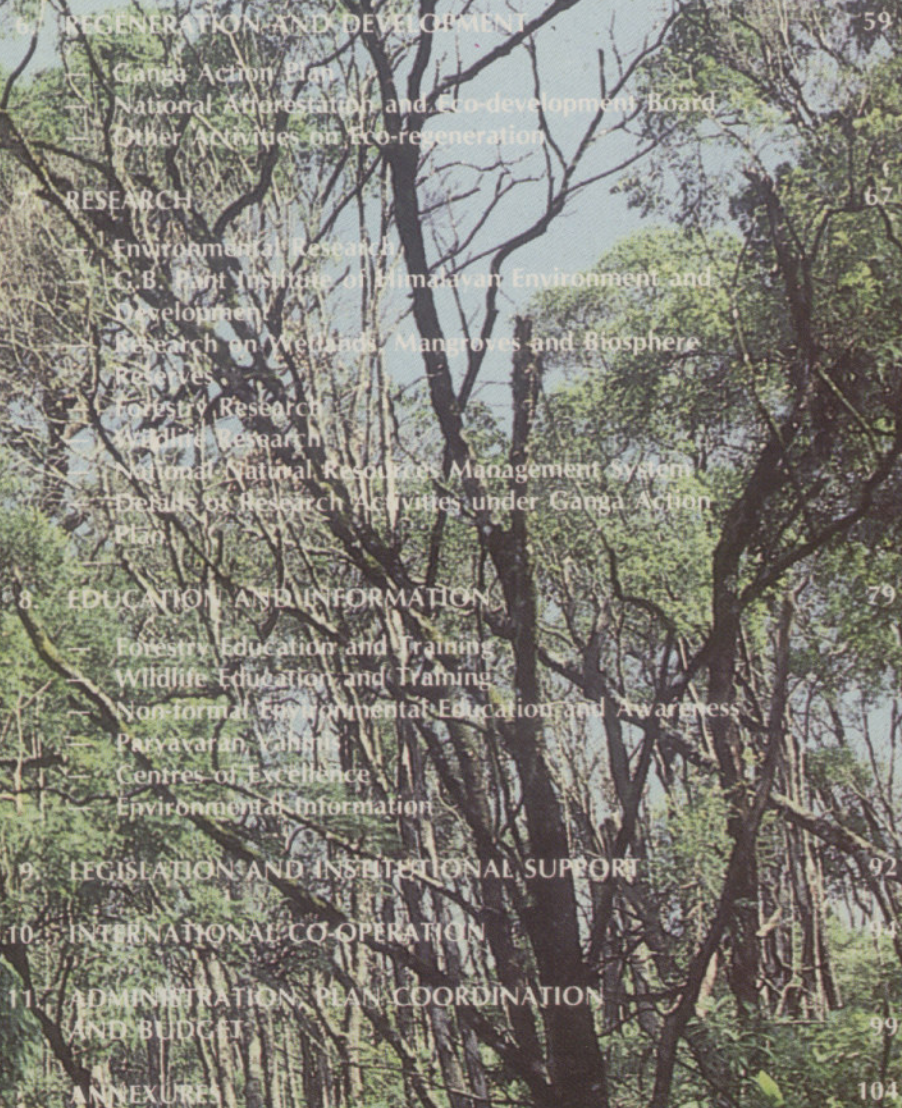 6. REGENERATION AND DEVELOPMENT 59
— Ganga Action Plan
— National Afforestation and Eco-development Board
— Other Activities on Eco-regeneration
7. RESEARCH 67
— Environmental Research
— G.B. Pant Institute of Himalayan Environment and
Development
— Research on Wetlands, Mangroves and Biosphere
Reserves
— Forestry Research
— Wildlife Research
— National Natural Resources Management System
— Details of Research Activities under Ganga Action
Plan
8. EDUCATION AND INFORMATION 79
— Forestry Education and Training
— Wildlife Education and Training
— Non-formal Environmental Education and Awareness
— Paryavaran Vahinis
— Centres of Excellence
— Environmental Information
9. LEGISLATION AND INSTITUTIONAL SUPPORT 92
10. INTERNATIONAL CO-OPERATION 94
11. ADMINISTRATION, PLAN COORDINATION
AND BUDGET 99
ANNEXURES 104